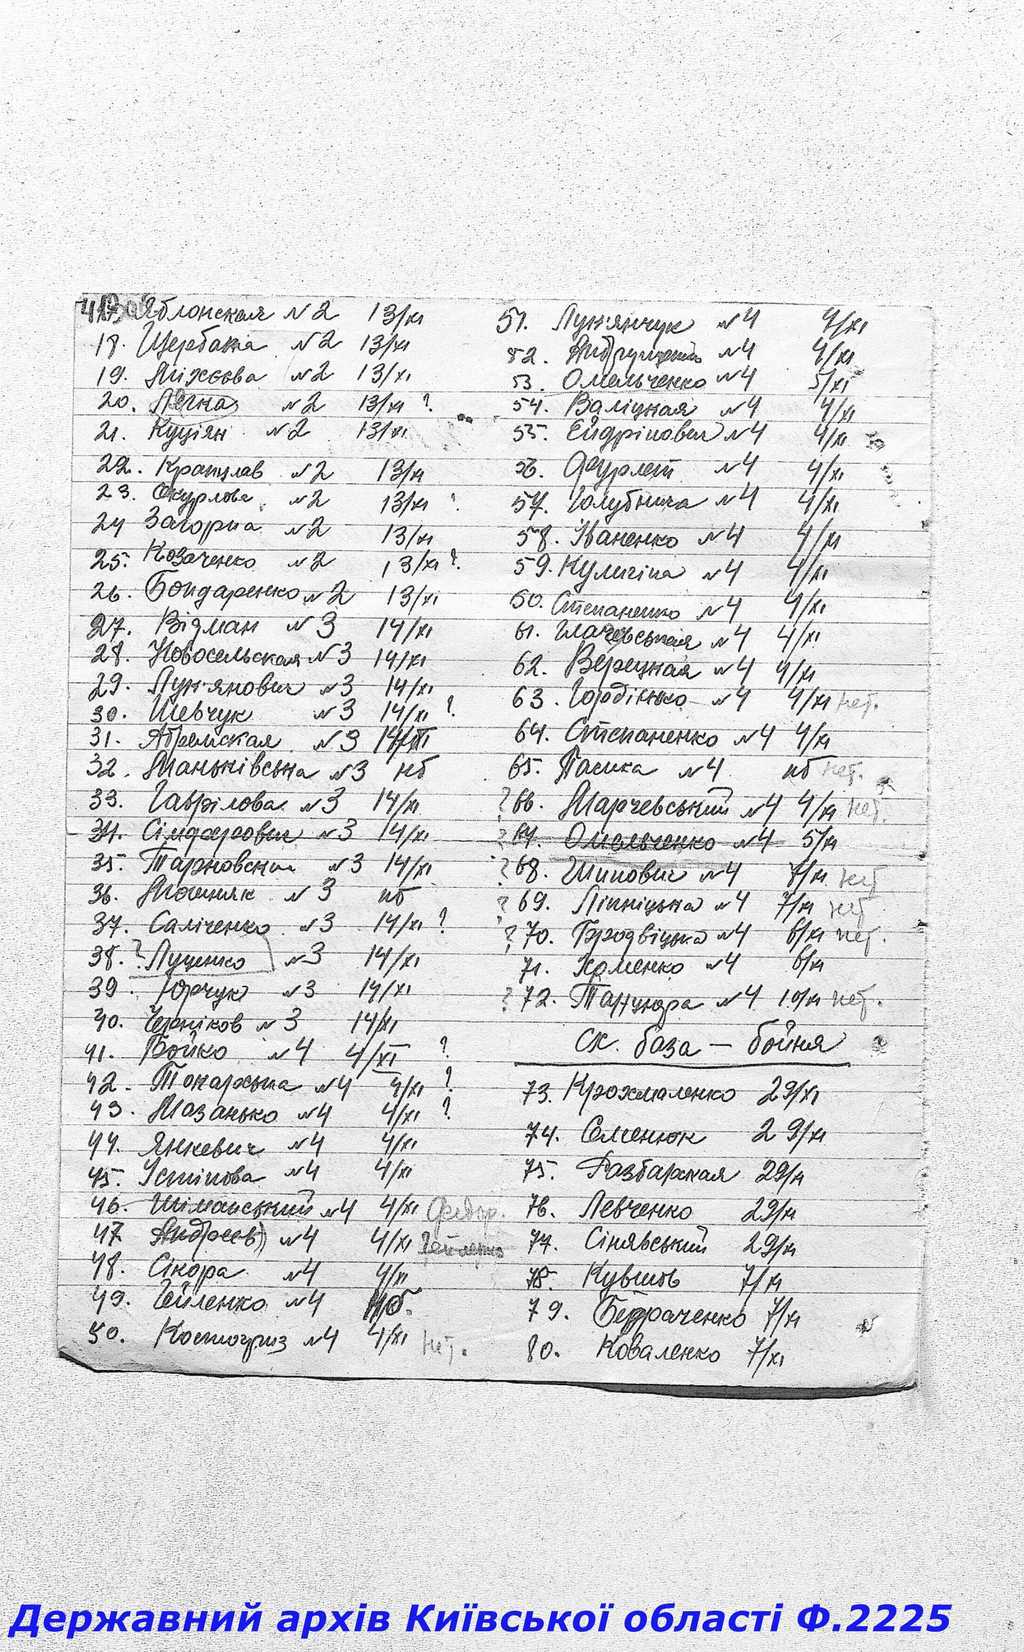 17. Яблонская №2 13/XI
18. Щербата №2 13/XI
19. Міхєєва №2 13/XI
20. Легка №2 13/XI ?
21. Куціян №2 13/XI
22. №2 13/XI
23. Окурлова №2 13/XI ?
24 Загорна №2 13/XI
25. Козаченко №2 13/XI ?
26. Бондаренко №2 13/XI
27. Відман №3 14/XI
28. Новосельская №3 14/XI
29. Лук'янович №3 14/XI
30. Шевчук №3 14/XI ?
31. Абрамская №3 14/XI
32. Маньківська №3 нб
33. Гаврілова №3 14/XI
34. Сімфорович №3 14/XI
35. Тарновский №3 14/XI
36. №3 нб
37. Саліченко №3 14/XI ?
38. ? Луценко №3 14/XI
39. Юрчук №3 14/XI
40. Черніков №3 14/XI
41. Бойко №4 4/XI ?
42. Токарська №4 4/XI ?
43. Мазанько №4 4/XI ?
44. Янкевич №4 4/XI
45. Устінова №4 4/XI
46. Шіманський №4 4/XI Федор.
47. Андреєв №4 4/XI
48. Сікора №4 4/XI
49. Гейленко №4 нб.
50. Костогриз №4 4/XI нет.
51. Лук'янчук №4 4/XI
52. №4 4/XI
53. Омельченко №4 5/XI
54. Валіцкая №4 4/XI
55. Ейдрігович №4 4/XI
56. №4 4/XI
57. Голубнича №4 4/XI
58. Іваненко №4 4/XI
59. Кулигіна №4 4/XI
60. Степаненко №4 4/XI
61. №4 4/XI
62. Верецкая №4 4/XI
63. Горбінько №4 4/XI нет.
64. Степаненко №4 4/XI
65. Пасика №4 нб нет.
? 66. Марчевський №4 4/XI нет.
? 67. Омельченко №4 5/XI
? 68. Шипович №4 7/XI нет
? 69. Ліпніцька №4 7/XI нет.
? 70. №4 6/XI нет.
71. Хоменко №4 6/XI
? 72. №4 10/XI нет.
ск. база — бойня
73. Крохмаленко 29/XI
74. Семенюк 29/XI
75. Разбарская 29/XI
76. Левченко 29/XI
77. Сінявський 29/XI
78. Кувшов 7/XI
79. 7/XI
80. Коваленко 7/XI
Державний архів Київської області Ф.2225